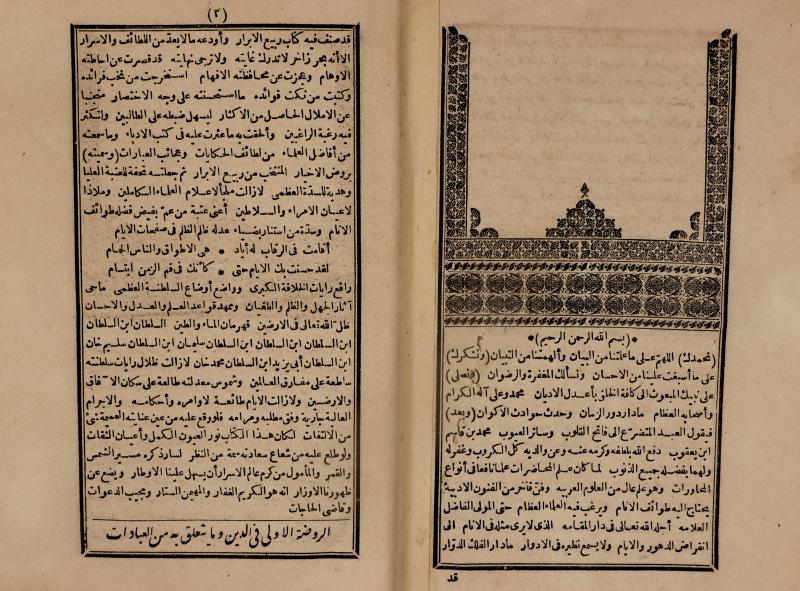 (بسم الله الرحمن الرحيم)
(نحمدك) اللهم على ما علمتنا من البيان وألهمتنا من التبيان (ونشكرك)
على ما أسبغت علينا من الاحسان ونسألك المغفرة والرضوان (ونصلى)
على نبيك المبعوث الى كافة الخلق بأعدل الاديان محمد وعلى آله الكرام
وأصحابه العظام ما دار دور الزمان وحدث حوادث الاكوان (وبعد)
فيقول العبد المتضرع الى فاتح القلوب وساتر العيوب محمد بن قاسم
ابن يعقوب دفع الله بلطفه وكرمه عنه وعن والديه كل الكروب وغفر له
ولهما بفضله جميع الذنوب لما كان علم المحاضرات علما نافعا فى أنواع
المحاورات وهو علم عال من العلوم العربيه وفن فاخر من الفنون الادبية
يحتاج اليه طوائف الانام ويرغب فيه العلماء العظام حتى المولى الفاضل
العلامه أحله الله تعالى فى دار المقامه الذى لا يرى مثله فى الانام الى
انقراض الدهور والايام ولا يسمع نظيره فى الادوار ما دار الفلك الدوار
قد
(٢)
قد صنف فيه كتاب ربيع الابرار وأودعه ما لا يعد من اللطائف والاسرار
الا أنه بحر زاخر لا تدرك غايته ولا ترجى نهايته قد قصرت عن احاطته
الاوهام وعجزت عن محافظته الافهام استخرجت من نخب فرائده
وكتبت من نكت فوائده ما استحسنته على وجه الاختصار متجنبا
عن الاملال الحاصل من الاكثار ليسهل ضبطه على الطالبين ولتكثر
فيه رغبة الراغبين وألحقت به ما عثرت عليه فى كتب الادباء وما سمعته
من أفاضل العلماء من لطائف الحكايات وعجائب العبارات (وسميته)
بروض الاخيار المنتخب من ربيع الابرار ثم جعلته تحفة للعتبة العليا
وهدية للسدة العظمى لا زالت ملجأ لاعلام العلماء الكاملين وملاذا
لاعيان الامراء والسلاطين أعنى عتبة من عم بفيض فضله طوائف
الانام وسدة من استنار بضياء عدله ظالم الظلم فى صفحات الايام
أقامت فى الرقاب له أياد * هى الاطواق والناس الحمام
لقد حسنت بك الايام حتى * كأنك فى فم الزمن ابتسام
رافع رايات الخلافة الكبرى وواضع أوضاع السلطنة العظمى ماحى
آثار الجهل والظلم والطغيان وممهد قواعد العلم والعدل والاحسان
ظل الله تعالى فى الارضين قهرمان الماء والطين السلطان ابن السلطان
ابن السلطان ابن السلطان ابن السلطان سليمان ابن السلطان سليم خان
ابن السلطان أبى يزيد ابن السلطان محمد خان لا زالت ظلال رايات سلطنته
ساطعة على مفارق العالمين وشموس معدلته طالعة على سكان الآفاق
والارضين ولا زالت الايام طائعة لاوامره وأحكامه والاجرام
العالية جارية وفق مطلبه ومرامه فلو وقع عليه من عين عنايته العميمة شئ
من الالتفات لكان هذا الكتاب نور العيون الكمل وأعيان الثقات
ولو طلع عليه من شعاع سعادته سمة من النظر لسار ذكره مسير الشمس
والقمر والمأمول من كرم عالم الاسرار أن يسهل علينا الاوطار ويضع عن
ظهورنا الاوزار انه هو الكريم الغفار والمهيمن الستار ومجيب الدعوات
وقاضى الحاجات
الروضة الاولى فى الدين وما يتعلق به من العبادات